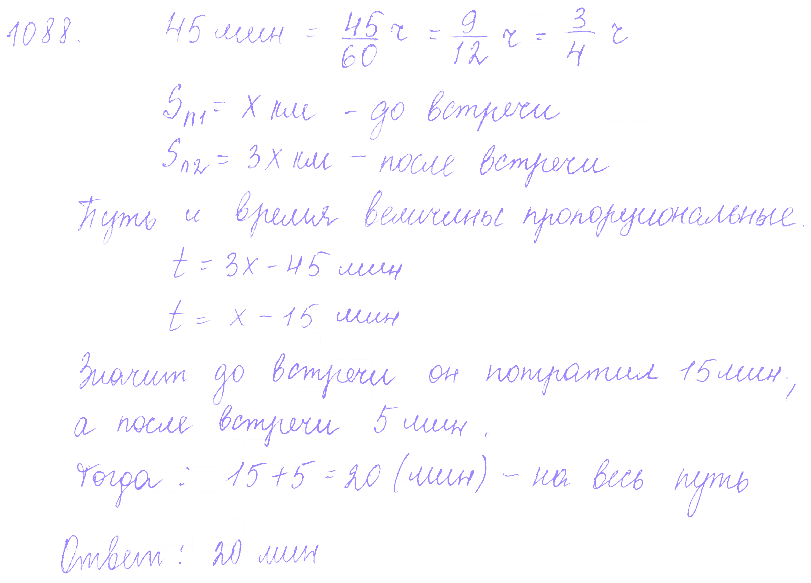 1088. 45 мин = 45/60 ч = 9/12 ч = 3/4 ч
Sп1 = x км - до встречи
Sп2 = 3x км - после встречи
Путь и время величины пропорциональные.
t = 3x - 45 мин
t = x - 15 мин
Значит до встречи он потратил 15 мин.,
а после встречи 5 мин.
Тогда: 15 + 5 = 20 (мин) - на весь путь
Ответ: 20 мин